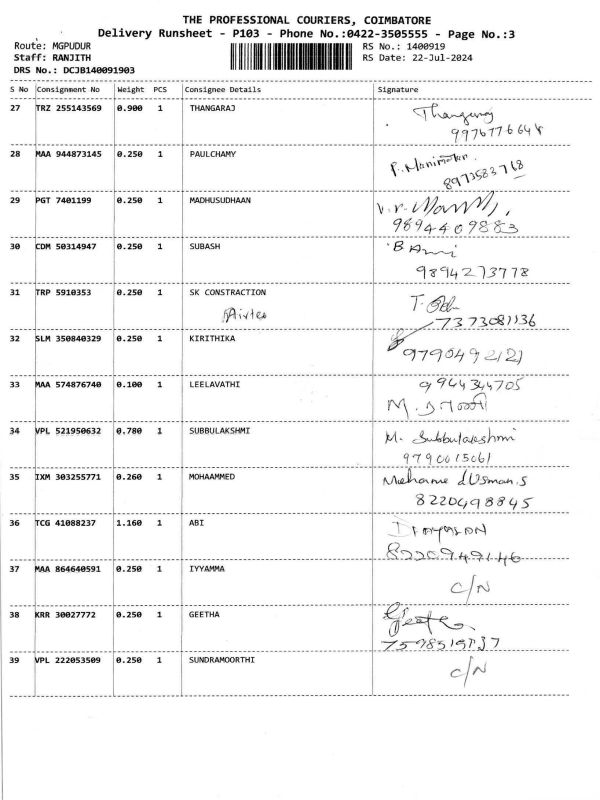 THE PROFESSIONAL COURIERS, COIMBATORE
Delivery Runsheet - P103 - Phone No.:0422-3505555 - Page No.:3
Route: MGPUDUR RS No.: 1400919
Staff: RANJITH RS Date: 22-Jul-2024
DRS No.: DCJB140091903
S No Consignment No Weight PCS Consignee Details Signature
27 TRZ 255143569 0.900 1 THANGARAJ Thangaraj
28 MAA 944873145 0.250 1 PAULCHAMY P. Manimaran
8973583768
29 PGT 7401199 0.250 1 MADHUSUDHAAN
9894409883
30 CDM 50314947 0.250 1 SUBASH
9894273778
31 TRP 5910353 0.250 1 SK CONSTRACTION
7373081136
32 SLM 350840329 0.250 1 KIRITHIKA
9790492121
33 MAA 574876740 0.100 1 LEELAVATHI 9944344705
34 VPL 521950632 0.780 1 SUBBULAKSHMI M. Subbulakshmi
9790015061
35 IXM 303255771 0.260 1 MOHAAMMED
8220498845
36 TCG 41088237 1.160 1 ABI
8220949146
37 MAA 864640591 0.250 1 IYYAMMA
C/N
38 KRR 30027772 0.250 1 GEETHA Geetha
39 VPL 222053509 0.250 1 SUNDRAMOORTHI
C/N